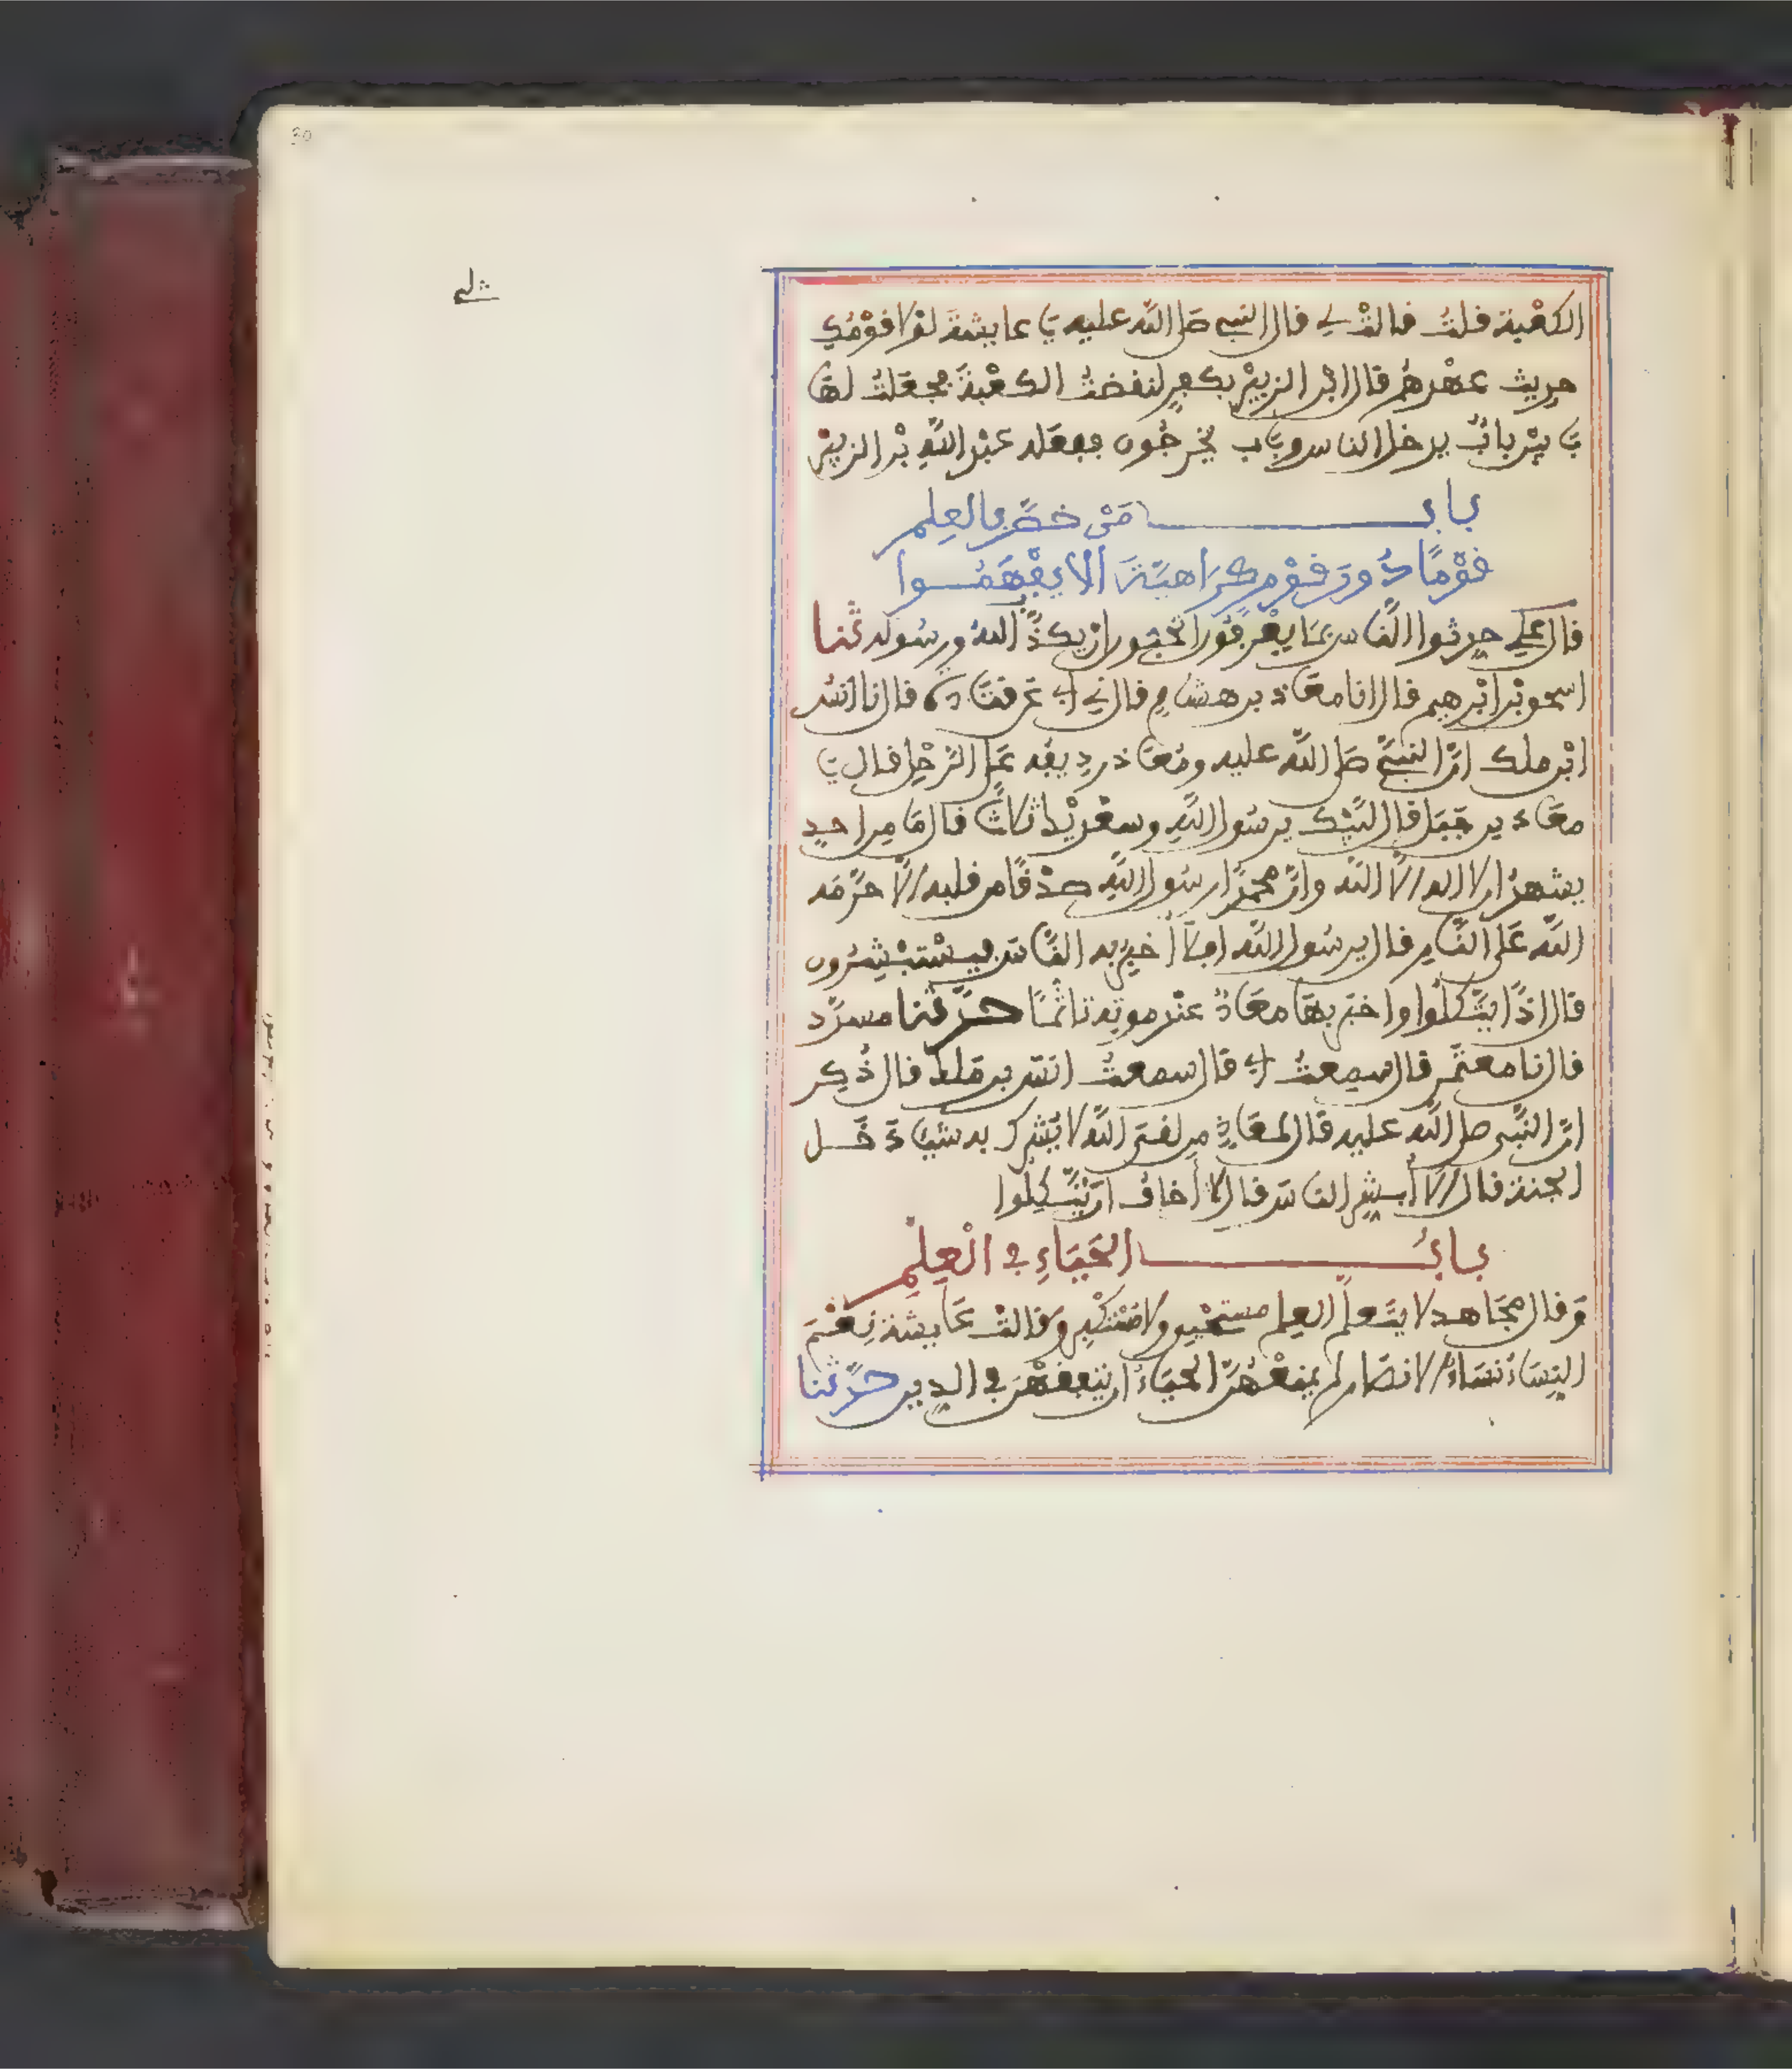 الكعْبة فلتُ فالتْ لي فال النبي صَلى اللّه عليه يَا عايشةَ لوْلا فوْمُكِ
حديث عهْدهُم قال ابْن الزبيْر بكفرٍ لنفضتُ الكعْبةَ فجعَلتُ لهَا
بَابيْن بابٌ يدخل الناس وبَاب يخْرجُون ففعَله عبْد اللّهِ بْن الزبيْر
باب مَنْ خصَّ بالعِلم
فوْمًا دُونَ فوْم كرَاهيَّةَ ألا يفْهَمُوا
فال عَلي حدِثوا النَّاس بمَا يعْرفُون أتحبُّون ان يكذَّبَ اللهُ ورسُوله ثنا
اسحٰو بْن ابْرهيم فال انا معَاذ بن هشامٍ فال ني أبي عَن فتَادة فال نا انسُ
ابْن ملك انَّ النبيَّ صَلى اللَّه عليه ومُعَاذ رديفُه عَلى الرَّحْل فال يَا
معَاذ بن جَبَل فال لبَّيْك يرسُول اللَّهِ وسعْديْك ثلاثًا فال مَا مِن احدٍ
يشهدُ ان لا اله إلاَّ اللَّه وانَّ محمدًا رسُول اللَّهِ صدْفًا من فلبه إلاَّ حرَّمَه
اللَّه عَلى النَّارِ فال يرسُول اللَّه افلاَ أخبِرُ به النَّاسَ فيسْتبْشِرُون
قال اذًا يتَّكلُوا واخبَر بهَا معَاذٌ عنْد موتِه تاثُّمًا حدَّثنا مسدَّد
فال نا معتَمر قال سمِعتُ أبي قال سمعتُ انسَ بن مَلك فال ذُكِر
انَّ النَّبي صلى اللَّه عليه قال لمعَاذٍ من لفيَ اللَّه لا يُشرك به شيئًا دَخَل
الجنة فال ألاَ أبشِر الناسَ فال لا أخافُ انْ يَّتَّكِلُوا
بابُ الحَيَاءِ في الْعِلْمِ
وَفال مجَاهد لا يتَعلَّم العِلم مستحْيٍ ولا مُسْتكْبِر وَفالتْ عَايشة نِعْمَ
النِسَاءُ نسَاءُ الانصَار لم يمْنعْهُنَّ الحيَاءُ ان يتفَفَّهْنَ في الدِين حدَّثنا